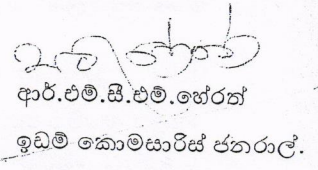 ආර්.එම්.සී.එම්.හේරත්
ඉඩම් කොමසාරිස් ජනරාල්.